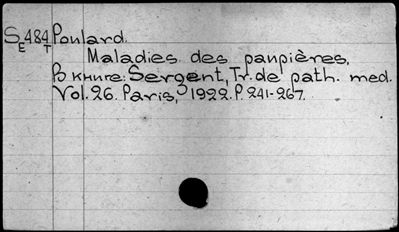 SE 484T Poulard.
Maladies des paupières.
В книге: Sergent, Tr. de path. med.
Vol. 26. Paris, 1922. P. 241-267.